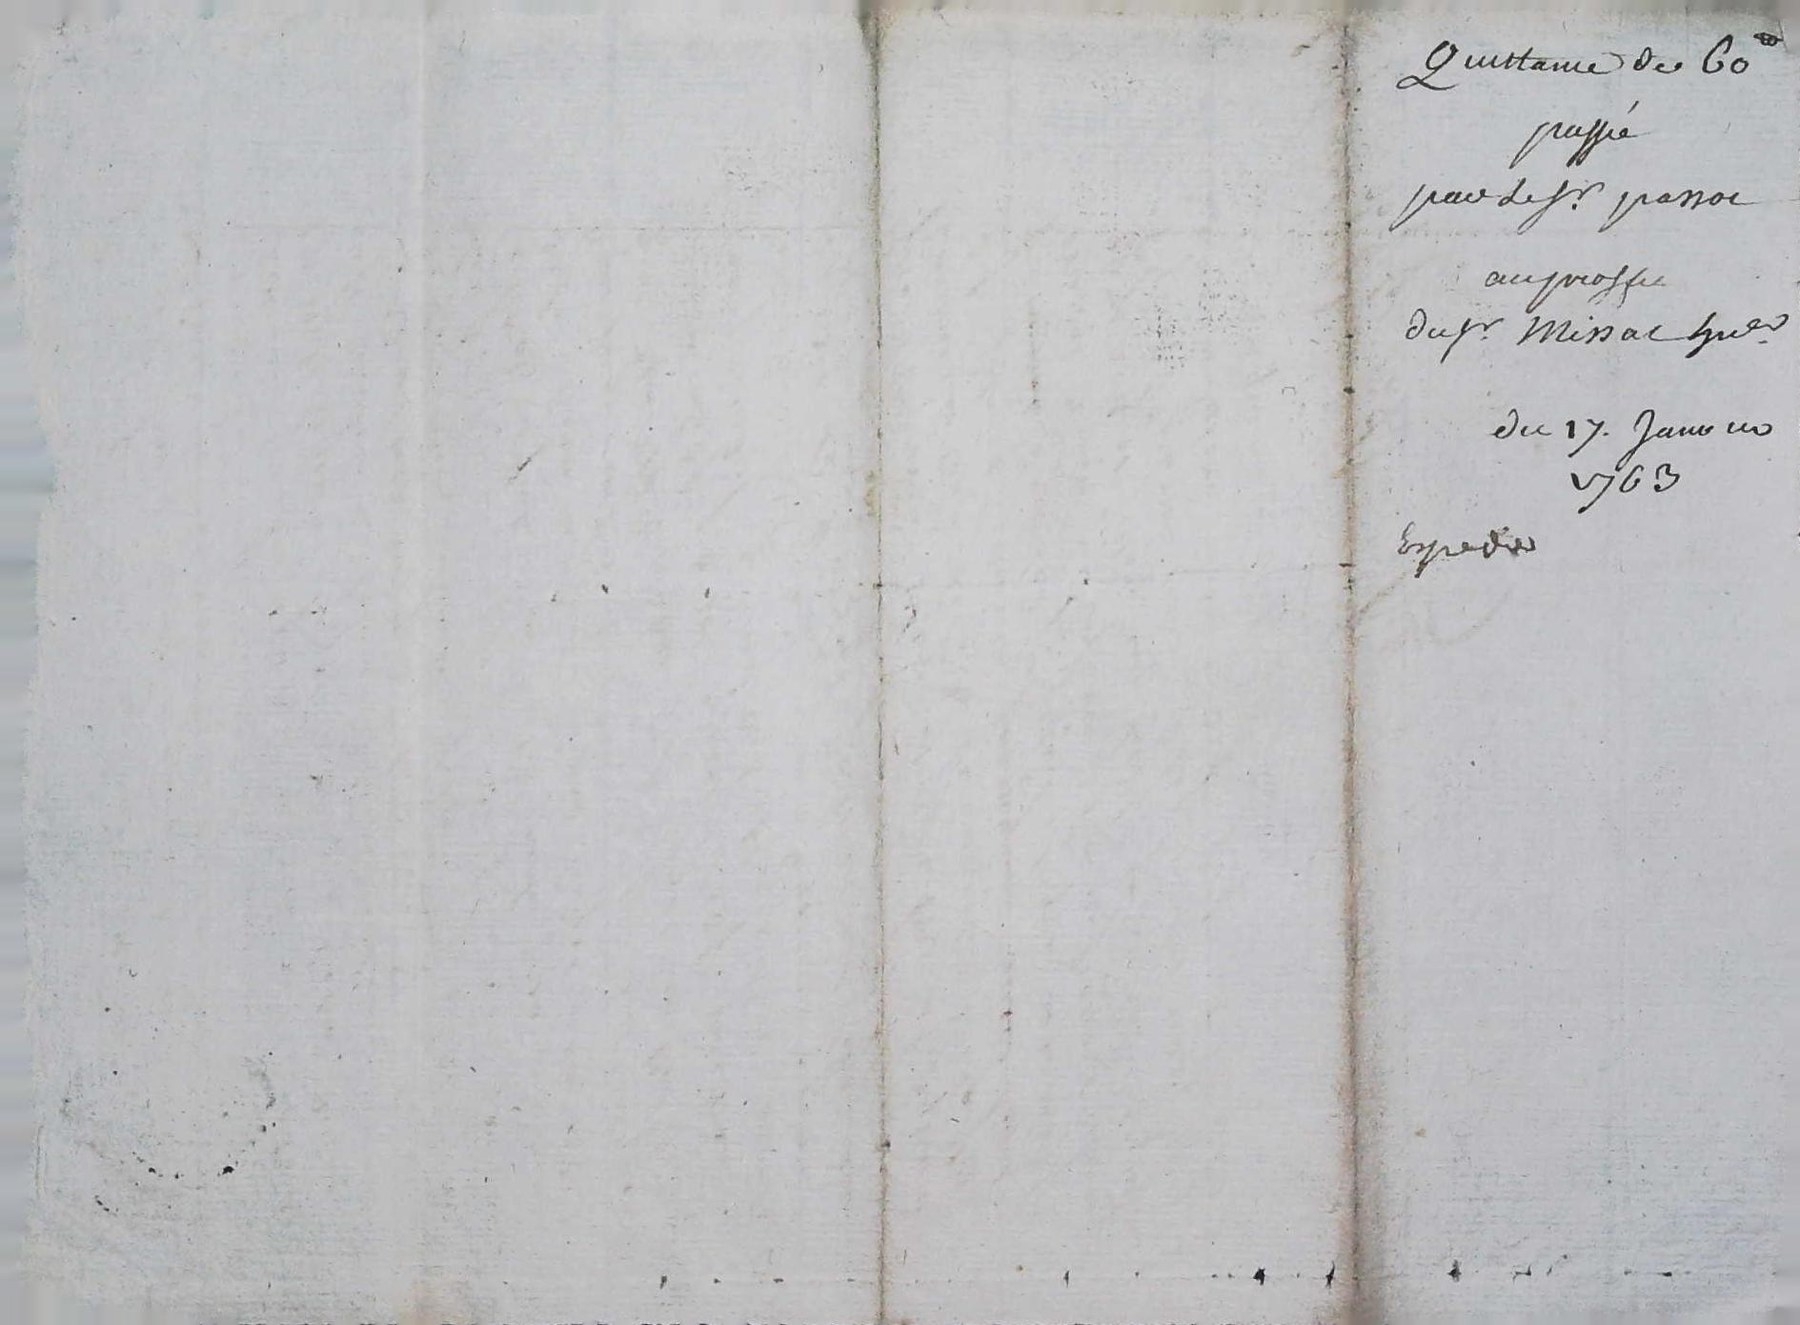 Quittance de 60#
passée
par le sr. passoc
au proffit
du sr. Missac
du 17. Janvier
1763
Expediée